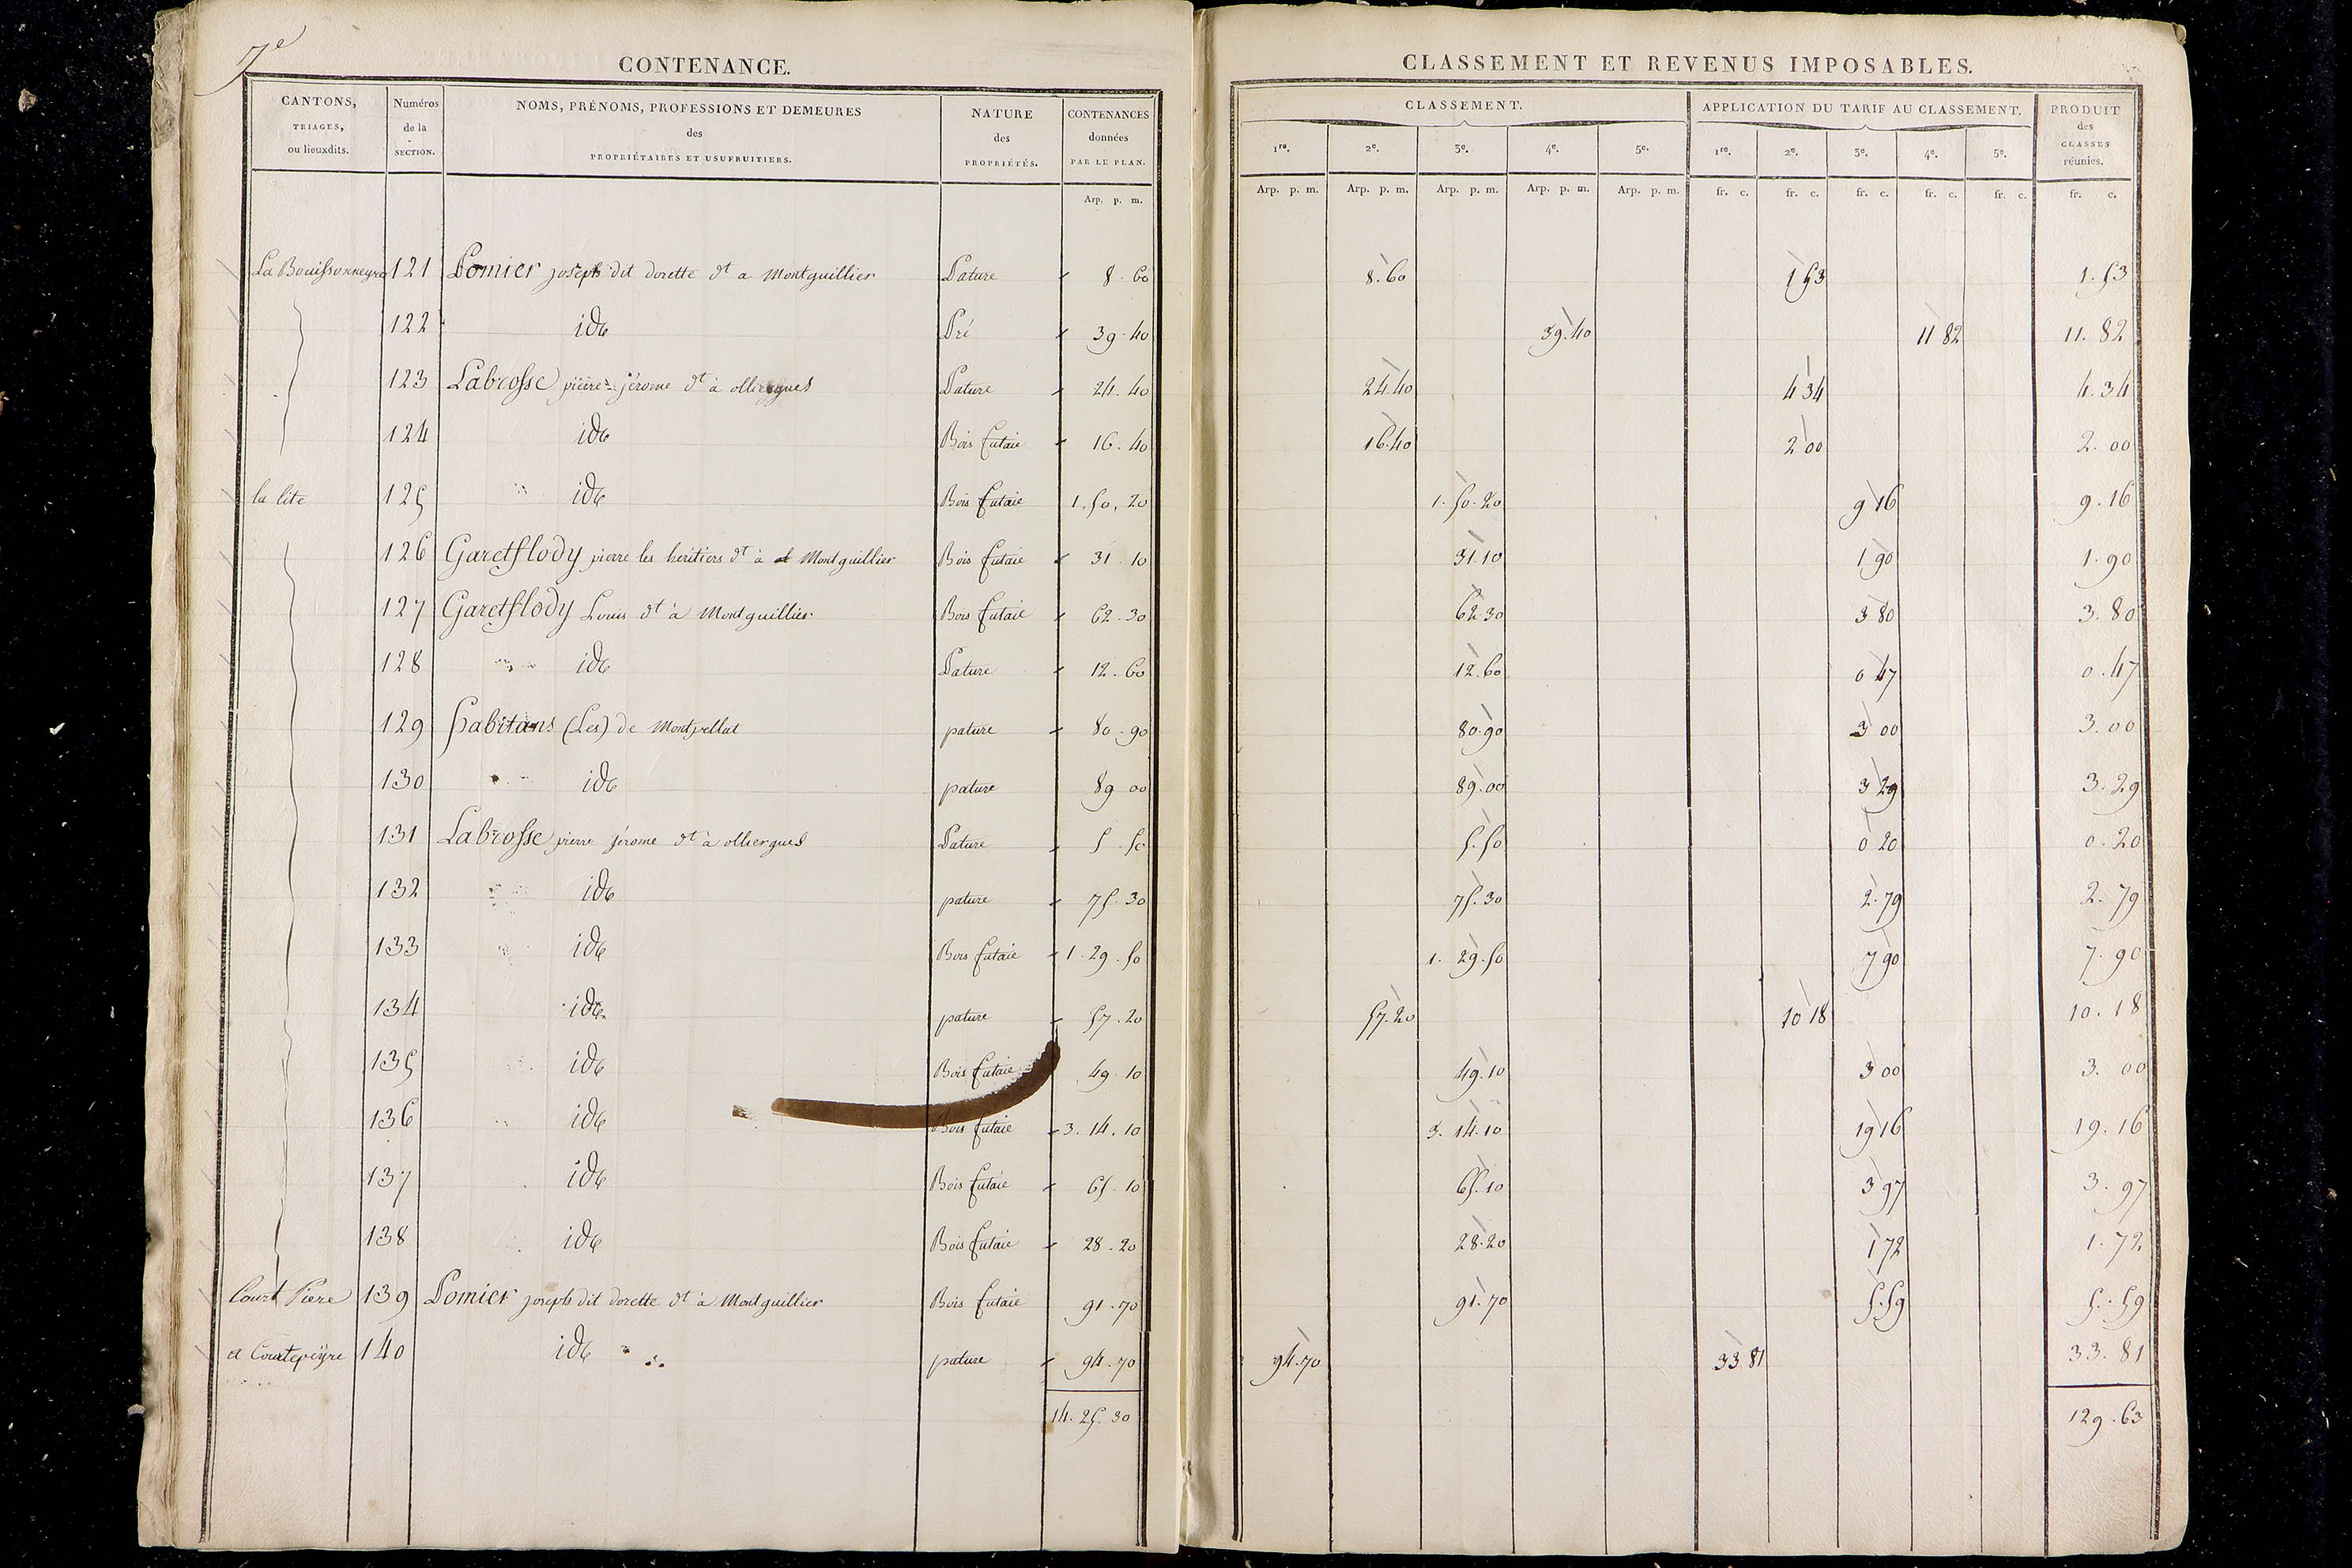 7e
CONTENANCE.
CANTONS, TRIAGES, ou lieuxdits.
Numéros de la SECTION.
NOMS, PRÉNOMS, PROFESSIONS ET DEMEURES des PROPRIÉTAIRES ET USUFRUITIERS.
NATURE des PROPRIÉTÉS.
CONTENANCES données PAR LE PLAN.
Arp. p. m.
CLASSEMENT ET REVENUS IMPOSABLES.
CLASSEMENT.
APPLICATION DU TARIF AU CLASSEMENT.
PRODUIT des CLASSES réunies.
1re. 2e. 3e. 4e. 5e. 1re. 2e. 3e. 4e. 5e.
Arp. p. m. Arp. p. m. Arp. p. m. Arp. p. m. Arp. p. m. fr. c. fr. c. fr. c. fr. c. fr. c. fr. c.
La Bouissonneyra 121 Pomier joseph dit dorette dt a Montguillier Pature 8.60 8.60 1 53 1.53
122 ide Pré 39.40 39.40 11 82 11.82
123 Labrosse pierre jérome dt à olliergues Pature 24.40 24.40 4 34 4.34
124 ide Bois futaie 16.40 16.40 2 00 2.00
la lite 125 ide Bois futaie 1.50.20 1.50.20 9 16 9.16
126 Garetflody pierre les heritiers dt à Montguillier Bois futaie 31.10 31.10 1 90 1.90
127 Garetflody Louis dt à Montguillier Bois futaie 62.30 62.30 3 80 3.80
128 ide Pature 12.60 12.60 0 47 0.47
129 habitans (Les) de Montpellat pature 80.90 80.90 3 00 3.00
130 ide pature 89 00 89.00 3 29 3.29
131 Labrosse pierre jérome dt à olliergues Pature 5.50 5.50 0 20 0.20
132 ide pature 75.30 75.30 2.79 2.79
133 ide Bois futaie 1.29.50 1.29.50 7 90 7.90
134 ide pature 57.20 57.20 10 18 10.18
135 ide Bois futaie 49.10 49.10 3 00 3.00
136 ide Bois futaie 3.14.10 3.14.10 19 16 19.16
137 ide Bois futaie 65.10 65.10 3 97 3.97
138 ide Bois futaie 28.20 28.20 1 72 1.72
Court Piere 139 Pomier joseph dit dorette dt à Montguillier Bois futaie 91.70 91.70 5.59 5.59
a Courtepeÿre 140 ide pature 94.70 94.70 33 81 33.81
14.25.30 129.63